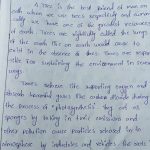 A Tree is the best friend of man on
earth. when we use trees respectfully and economically
we have one of the greatest resources
of earth. Trees are rightfully called the lungs
of the earth. life on earth would cease to
exist in the absence of trees. Trees are responsible
for sustaining the environment in several
ways.
Trees release life supporting oxygen and
absorb harmful gases like carbon dioxide during
the process of "photosynthesis". They act as
sponges by taking in toxic emissions and
other pollution cause particles released in to
atmosphere by industries and vehicles. The roots